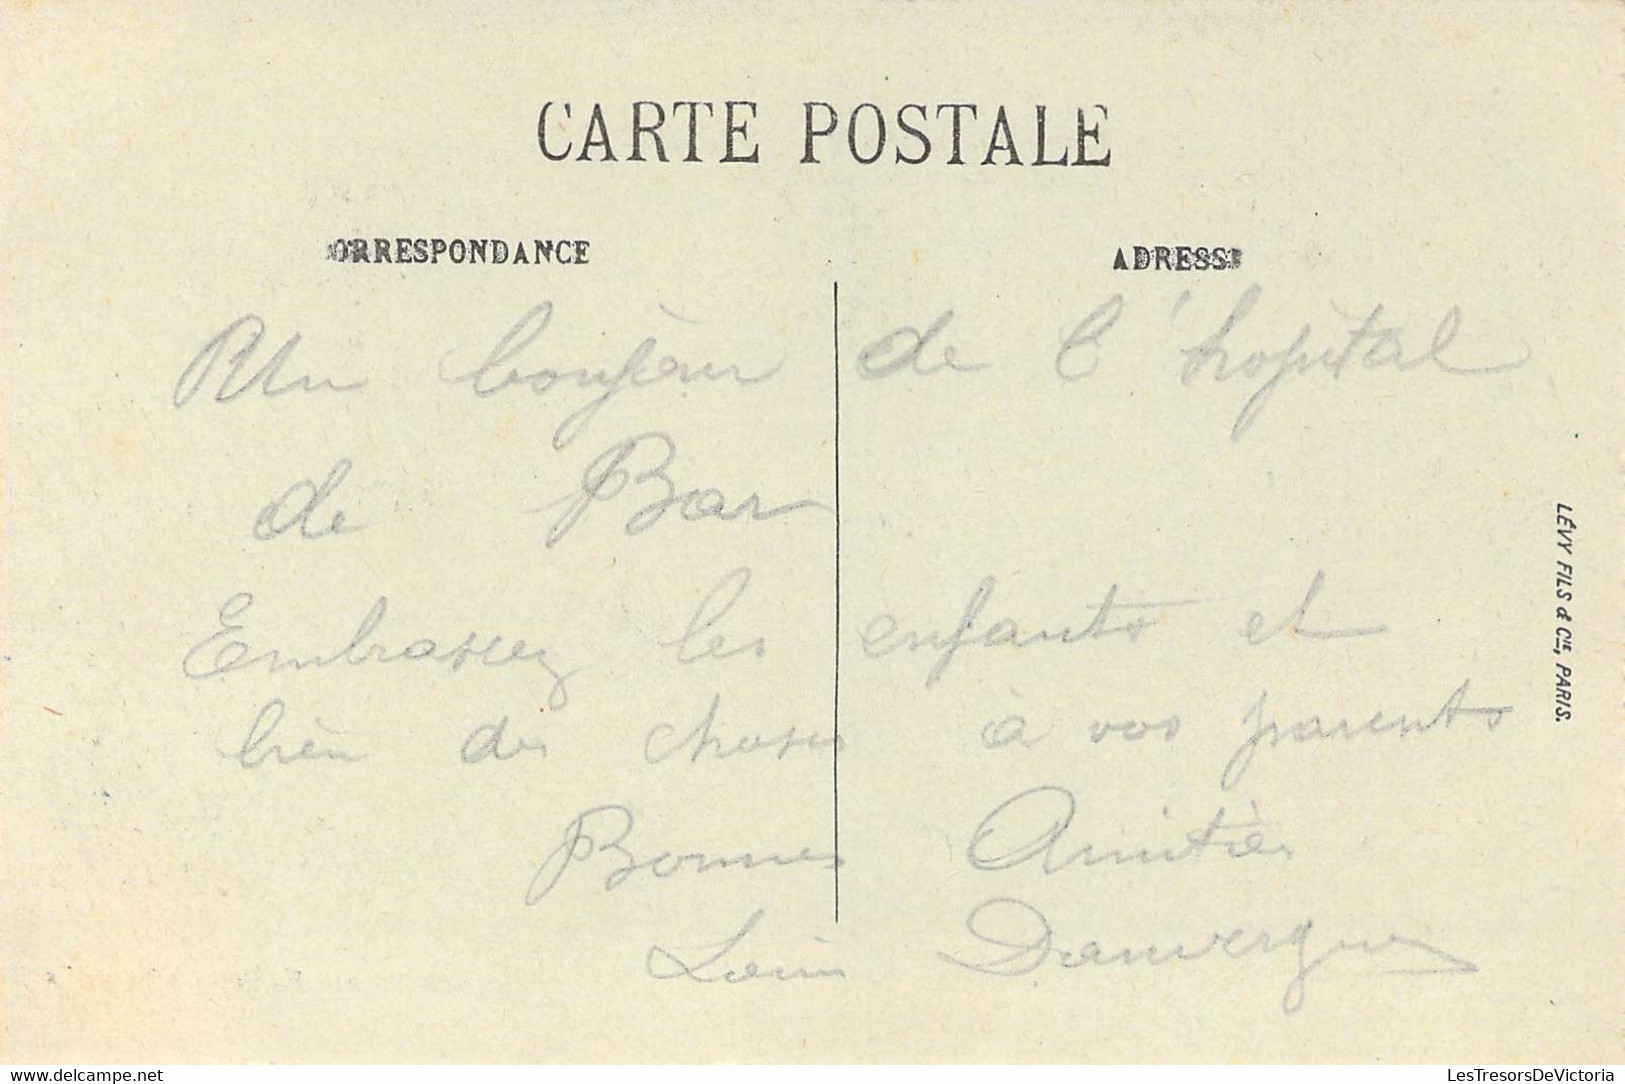 CARTE POSTALE
CORRESPONDANCE
ADRESSE
Un bonjour de l'hopital
de Bar
Embrassez les enfants et
bien des choses à vos parents
Bonnes Amitiés
Louis
LÉVY FILS & Cie, PARIS.
LesTresorsDeVictoria.delcampe.net
LesTresorsDeVictoria